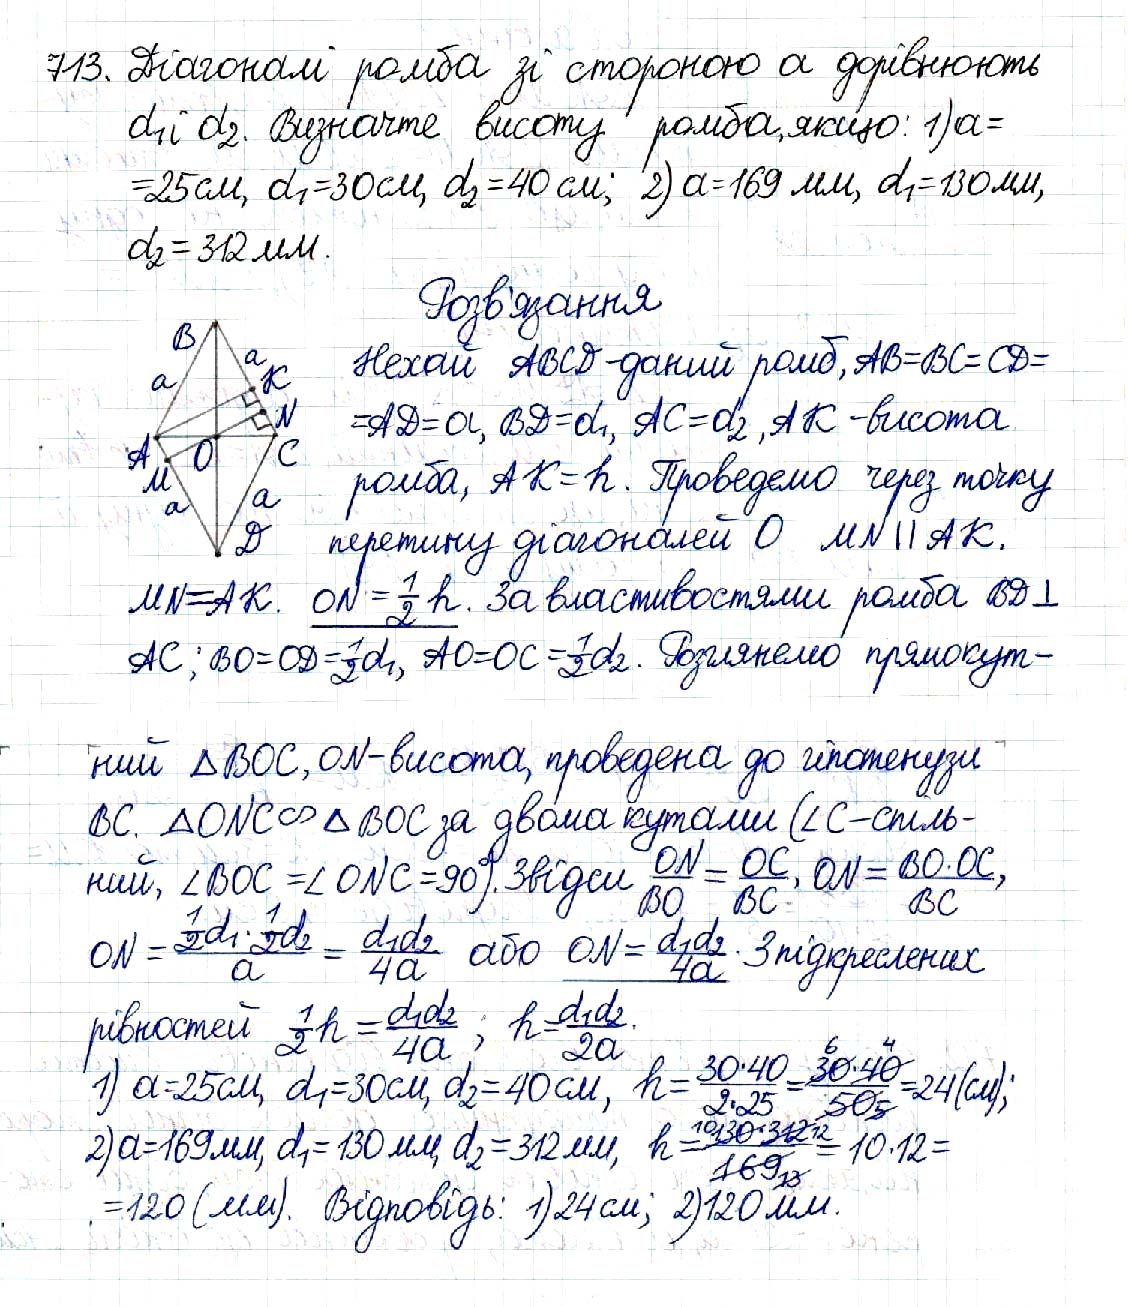 713. Діагоналі ромба зі стороною a дорівнюють
d₁ і d₂. Визначте висоту ромба, якщо: 1) a=
=25см, d₁=30см, d₂=40см; 2) a=169 мм, d₁=130мм,
d₂=312мм.
Розв'язання
B
a
a
K
N
A
O
C
M
a
a
D
Нехай ABCD-даний ромб, AB=BC=CD=
=AD=a, BD=d₁, AC=d₂, AK-висота
ромба, AK=h. Проведемо через точку
перетину діагоналей O MN||AK.
MN=AK. ON=1/2 h. За властивостями ромба BD⊥
AC; BO=OD=1/2 d₁, AO=OC=1/2 d₂. Розглянемо прямокут-
ний △BOC, ON-висота, проведена до гіпотенузи
BC. △ONC∽△BOC за двома кутами (∠C-спіль-
ний, ∠BOC=∠ONC=90°). Звідси ON/BO = OC/BC, ON = BO·OC/BC,
ON = (1/2 d₁ · 1/2 d₂)/a = d₁d₂/4a або ON = d₁d₂/4a. З підкреслених
рівностей 1/2 h = d₁d₂/4a; h = d₁d₂/2a.
1) a=25см, d₁=30см, d₂=40см, h = 30·40/2·25 = 30·40/50 = 24(см);
2) a=169мм, d₁=130мм, d₂=312мм, h = 130·312/169 = 10·12=
=120(мм). Відповідь: 1) 24см; 2) 120мм.